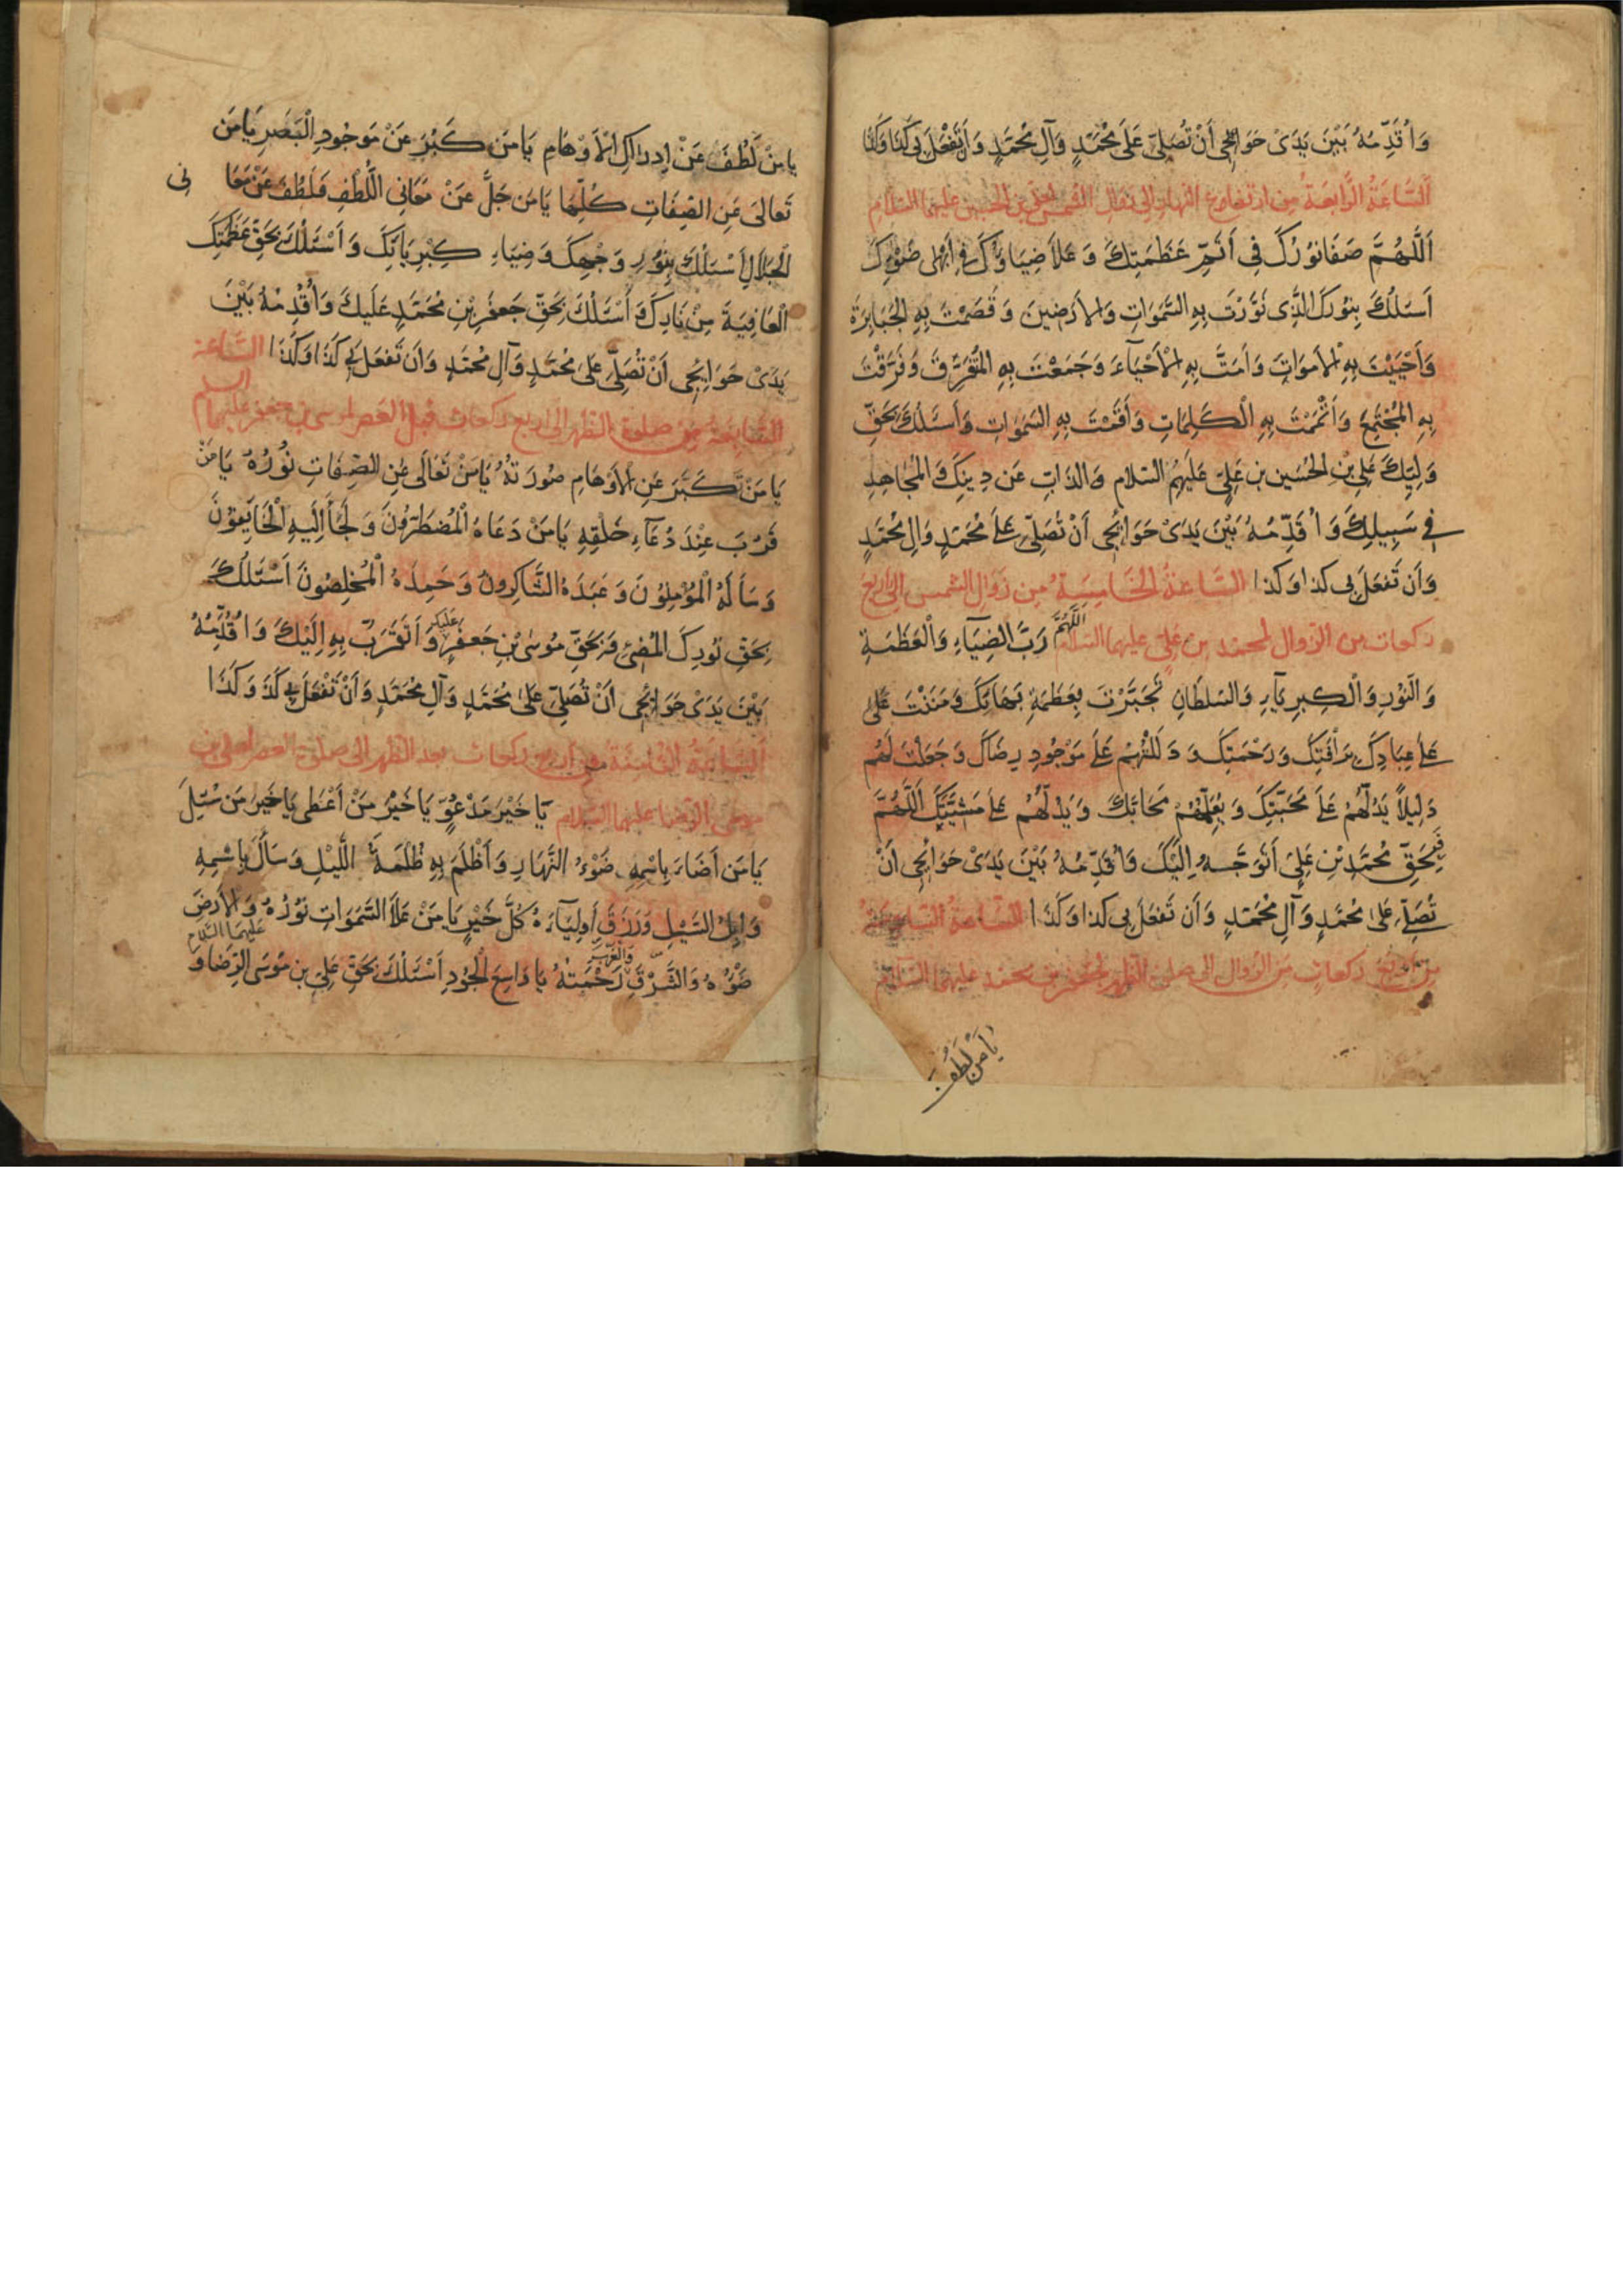 وَاُقَدِّمُهُ بَيْنَ يَدَىْ حَوَائِجى أَنْ تُصَلِّىَ عَلىَ مُحَمَّدٍ وَآلِ مُحَمَّدٍ وَاَن تَفْعَلَ بى كَذا وَكَذا
اَلسَّاعَةُ الرَّابِعَةُ مِن ارتفاع النهار الى زوال الشمس لعلى بن الحسين عليهما السلام
اَللَّهُمَّ صَفَا نوُرُكَ فى أَتَمِّ عَظَمَتِكَ وَ عَلاَ ضِيَاؤُكَ فى أَبْهى ضَوْءِكَ
اَسئَلُكَ بِنوُرِكَ الَّذِى نَوَّرْتَ بِهِ السَّموَاتِ وَالاَرَضينَ وَ قَصَمْتَ بِهِ الْجَبَابِرَةَ
وَأَحْيَيْتَ بِهِ الْاَموَاتِ وَأَمَتَّ بِهِ الْاَحْيَاءَ وَجَمَعْتَ بِهِ المُتَفَرِّقَ وَفَرَّقْتَ
بِهِ المُجْتَمِعَ وَأَتْمَمْتَ بِهِ الْكَلِمَاتِ وَأَقَمْتَ بِهِ السَموَاتِ وَأَسئَلُكَ بِحَقِّ
وَلِيِّكَ عَلِىِّ بْنِ الحُسَينِ بنِ عَلِىٍّ عَلَيْهِمُ السَّلام وَالذابِّ عَن دِينِكَ وَالمُجَاهِدِ
فى سَبِيلِكَ وَاُقَدِّمُهُ بَيْنَ يَدَىْ حَوَائِجى اَنْ تُصَلِّىَ عَلىَ مُحَمَّدٍ وَالِ مُحَمَّدٍ
وَاَن تَفعَلَ بى كذا وَكذا السَّاعَةُ الخَامِسَةُ مِن زَوَالِ الشمسِ الى اَربَع
ركعات مِن الزوال لمحمّد بن عَلىٍّ عليهما السلام اللَّهُمَّ رَبَّ الضِيَآءِ وَالْعَظَمَةِ
وَالنّوُرِ وَالْكِبرِيَآءِ وَالسّلطَانِ تَجَبَّرْتَ بِعَظَمَةِ بَهَائِكَ وَمَنَنْتَ عَلى
عَلىَ عِبَادِكَ بِرَأفَتِكَ وَرَحْمَتِكَ وَ دَلَلْتَهُمْ عَلىَ مَوْجُودِ رِضَاكَ وَجَعَلْتَ لَهُم
دَلِيلاً يَدُلُّهُمْ عَلىَ مَحَبَّتِكَ وَ يُعَلِّمُهُمْ مَحَابَّكَ وَيَدُلُّهُمْ عَلىَ مَشِيَّتِكَ اَللَّهُمَّ
فَبِحَقِّ مُحَمَّدِ بْنِ عَلِىٍّ أَتَوَجَّهُ اِلَيْكَ وَاُقَدِّمُهُ بَيْنَ يَدَىْ حَوَائِجى اَنْ
تُصَلِّىَ عَلىٰ مُحَمَّدٍ وَآلِ مُحَمَّدٍ وَأَن تَفعَلَ بى كذا وَكَذَا السَّاعَةُ السَّادِسَةُ
مِن اَربَع ركعاتٍ مِن الزوال الى صلوة الظهر لجعفر بن محمد عليهما السلام
يَا مَنْ لَطُفَ
يا مَنْ لَطُفَ عَنْ اِدراكِ الْاَوْهَامِ يَا مَن كَبُرَ عَنْ مَوجُودِ الْبَصَرِ يَا مَن
تَعالىَ عَنِ الصّفَاتِ كُلِّهَا يَا مَن جَلَّ عَنْ مَعَانِى اللُّطفِ وَلَطُفَ عَنْ مَعَا نى
الْجَلاَلِ اَسْئَلُكَ بِنُورِ وَجْهِكَ وَضِيَاءِ كِبْرِيَائِكَ وَ اَسْئَلُكَ بِحَقِّ عَظَمَتِكَ
الْعَافِيَةَ مِنْ نَارِكَ وَأَسْئَلُكَ بِحَقِّ جَعفَرِ بْنِ مُحَمَّدٍ عَلَيكَ وَأُقَدِّمُهُ بَيْنَ
يَدَىْ حَوَائِجى اَنْ تُصَلِّىَ عَلىَ مُحَمَّدٍ وَآلِ مُحَمَّدٍ وَاَن تَفعَل بى كَذَا وَكَذَا السَّاعة
السَّابِعَةُ مِن صلوة الظهر الى اربع ركعات قبل العَصر لموسى بن جعفر عليهما السلم
يَا مَن تَكَبَّرَ عَنِ الاَوْهَامِ صُورَتُهُ يَا مَنْ تَعَالَى عَنِ الصِّفَاتِ نُوُرُهُ يَا مَنْ
قَرُبَ عِنْدَ دُعَآءِ خَلْقِهِ يَا مَنْ دَعَاهُ الْمُضطَرّوُنَ وَ لَجَأَ إِلَيهِ الْخَائِفوُنَ
وَسَأَلَهُ الْمُؤْمِنُونَ وَعَبَدَهُ الشَّاكِروُنَ وَحَمِدَهُ الْمُخلِصُونَ اَسْئَلُكَ
بِحَقِّ نُورِكَ المُضئِ وَبِحَقِّ مُوسى بْنِ جَعفَرٍ عَلَيكَ وَ أَتَقَرَّبُ بِهِ اِلَيْكَ وَاُقَدِّمُهُ
بَيْنَ يَدَىْ حَوَائِجى اَنْ تُصَلِّىَ عَلىٰ مُحَمَّدٍ وَآلِ مُحَمَّدٍ وَأَنْ تَفْعَلَ بى كَذَ وَ كَذَا
اَلسَّاعَةُ الثامِنَةُ مِن اربع ركعات بعد الظهر الى صلوة العصر لعلى بن
موسى الرّضا عليهما السلام يَا خَيْرَ مَدْعُوٍّ يَا خَيْرُ مَنْ اَعْطى يَا خَيْرُ مَن سُئِلَ
يَا مَن أَضَاءَ بِاسْمِهِ ضَوْءُ النَّهَارِ وَأَظْلَمَ بِهِ ظُلْمَةُ اللَّيْلِ وَسَالَ بِاسْمِهِ
وَابِلُ السَّيْلِ وَرَزَقَ أَولِيَآءَهُ كُلَّ خَيْرٍ يَا مَنْ عَلاَ السَّمَوَاتِ نوُرُهُ وَالاَرضَ
ضَوْءُهُ وَالشَّرْقَ وَالغَرْبَ رَحْمَتُهُ يا وَاسِعَ الْجُودِ اَسْئَلُكَ بِحَقِّ عَلِىِّ بنِ مُوسَى الرِّضَا عَلَيْهِمَا السَّلام وَ